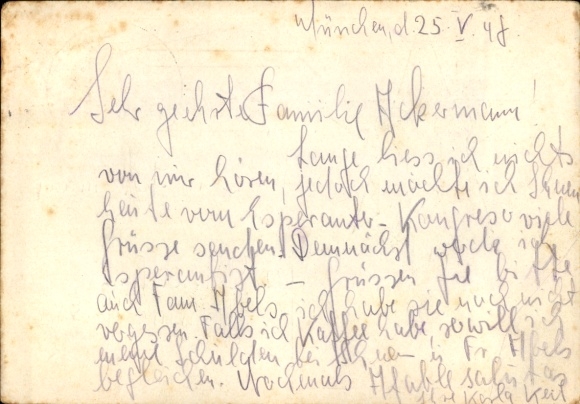 München, d. 25. V. 48.
Sehr geehrte Familie Ackermann!
Lange liess ich nichts
von mir hören, jedoch möchte ich Ihnen
heute vom Esperanto-Kongreso viele
Grüsse senden. Demnächst werde ich
Esperantist. - Grüssen Sie bitte
auch Fam. Abels, ich habe sie noch nicht
vergessen. Falls ich Kaffee habe so will ich
meine Schulden bei Ihnen u. Fr. Abels
begleichen. Nochmals
Karla Keil